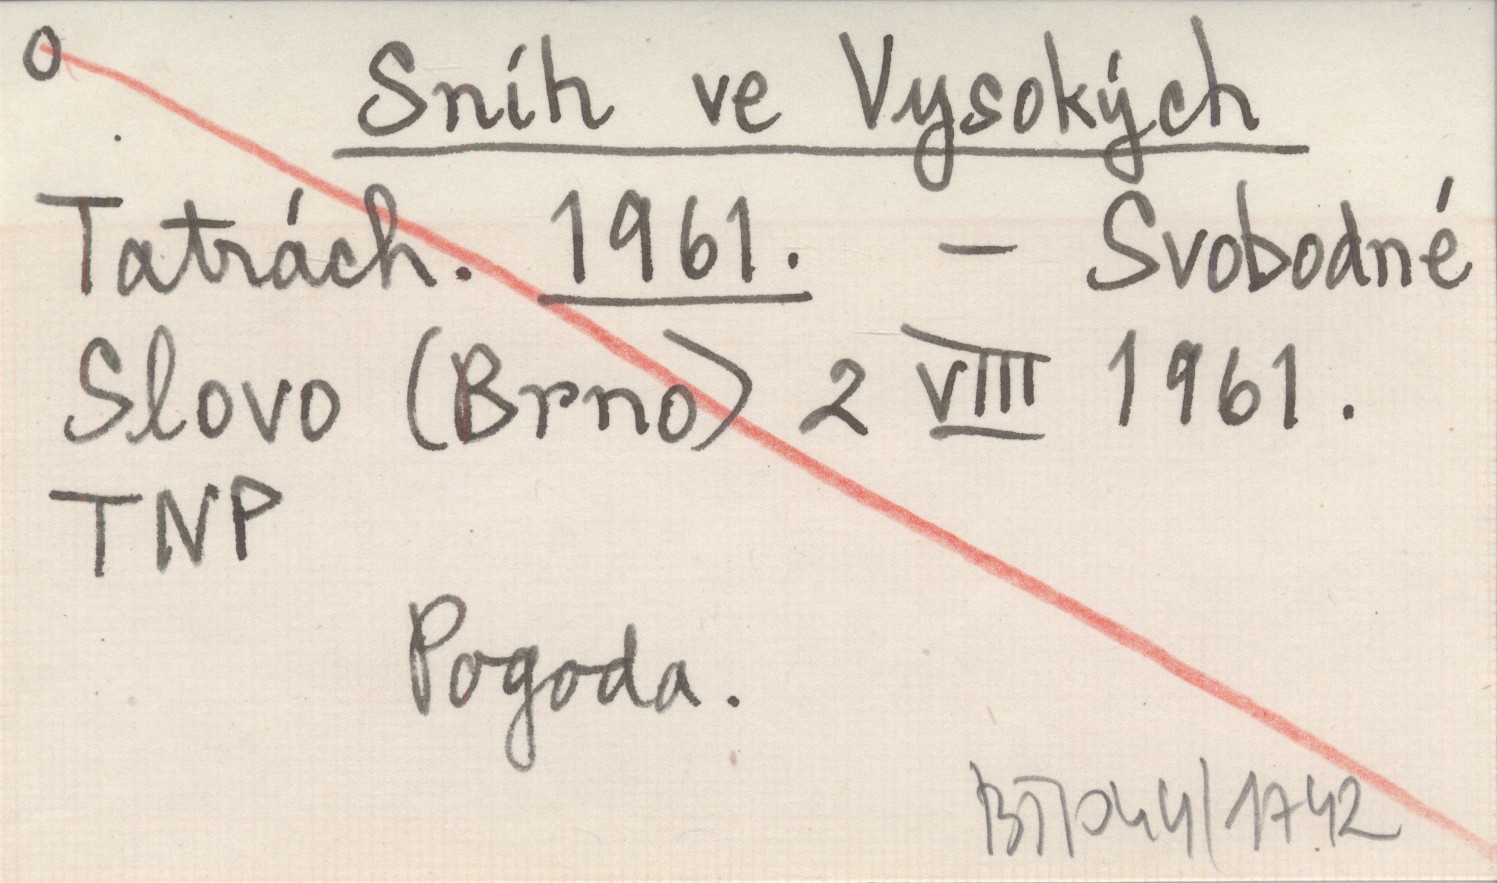 O
Sníh ve Vysokých
Tatrách. 1961. - Svobodné
Slovo (Brno) 2 VIII 1961.
TNP
Pogoda.
BT/044/1742